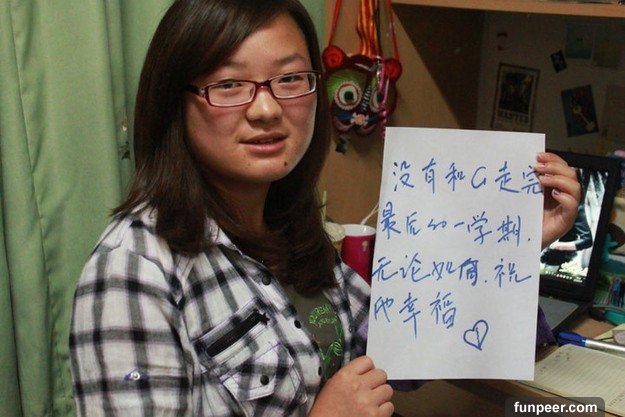 没有和G走完
最后的一学期.
无论如何.祝
他幸福
funpeer.com